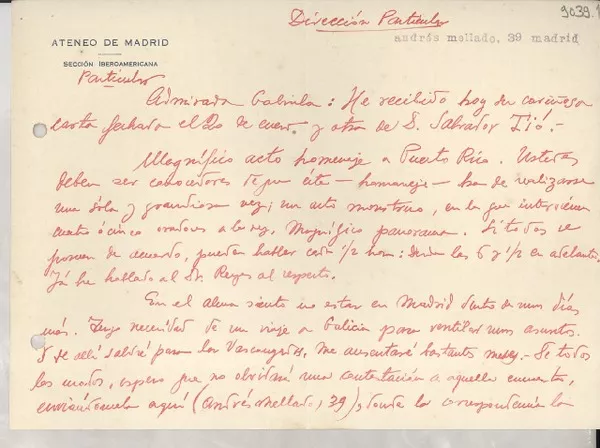 Dirección Particular
9039.1
andrés mellado, 39 madrid
ATENEO DE MADRID
SECCIÓN IBEROAMERICANA
Particular
Admirada Gabriela: He recibido hoy su cariñosa
carta fechada el 20 de enero y otra de S. Salvador Tió.-
Magnífico acto homenaje a Puerto Rico. Ustedes
deben ser conocedores de que éste - homenaje - ha de realizarse
una sola y grandiosa vez; un acto monstruo, en la que intervienen
cuatro ó cinco oradores a la vez. Magnífico panorama. Si todos se
ponen de acuerdo, pueden hablar cada 1/2 hora: desde las 6 y 1/2 en adelante.
Ya he hablado al Sr. Reyes al respecto.
En el alma siento no estar en Madrid dentro de unos días
más. Tengo necesidad de un viaje a Galicia para ventilar unos asuntos.
Y de allí saldré para las Vascongadas, me ausentaré bastantes meses.- De todos
los modos, espero que no olvidará una contestación a aquella encuesta,
enviándomela aquí (Andrés Mellado, 39), donde la correspondencia la